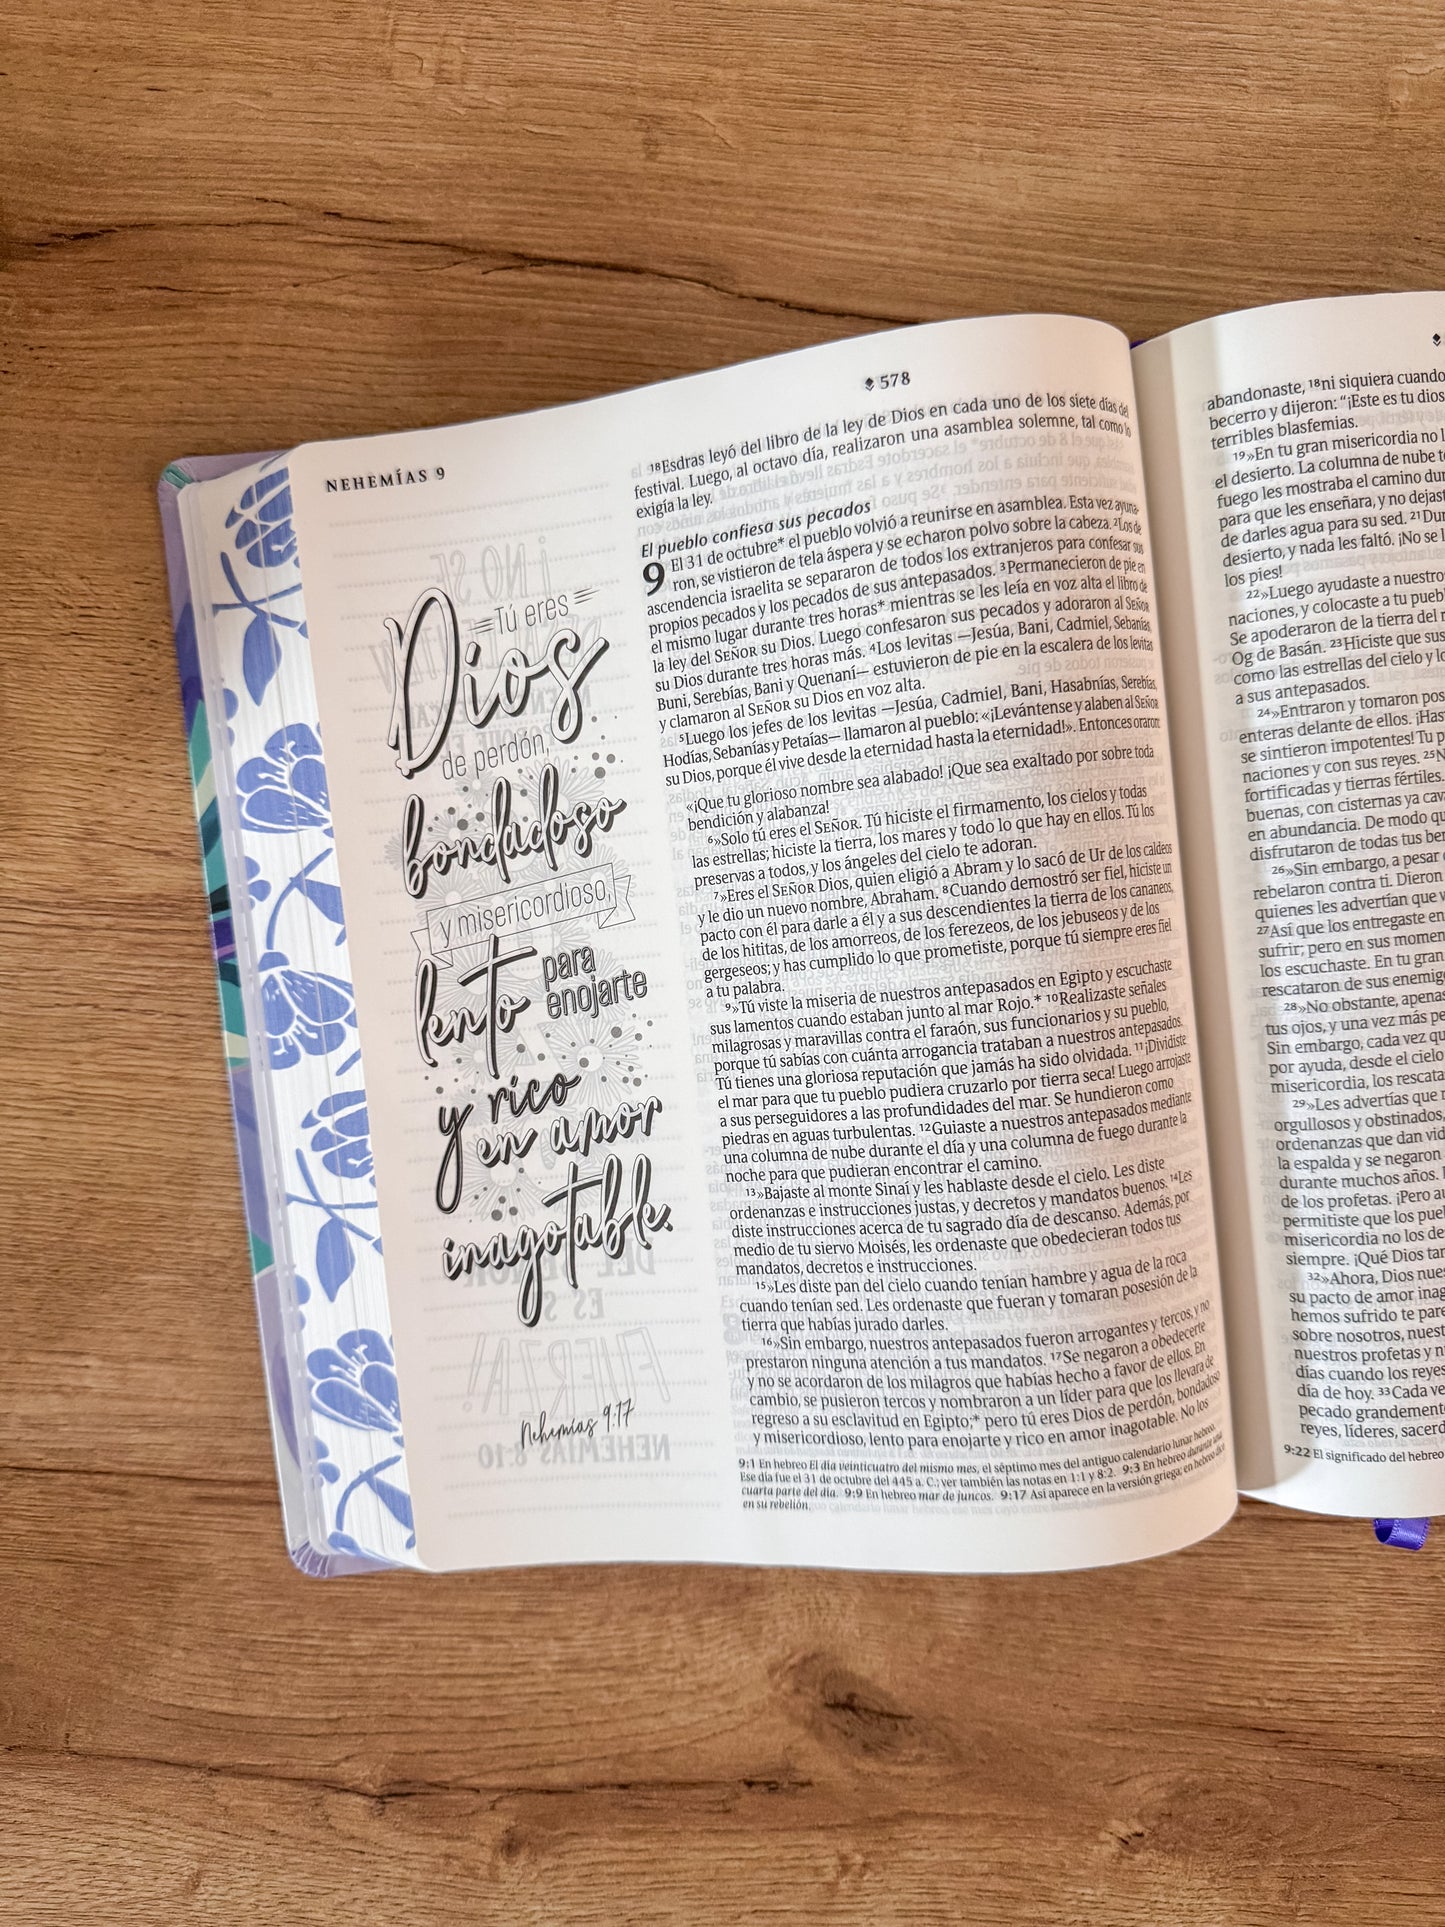 NEHEMÍAS 9
578
18Esdras leyó del libro de la ley de Dios en cada uno de los siete días del
festival. Luego, al octavo día, realizaron una asamblea solemne, tal como lo
exigía la ley.
El pueblo confiesa sus pecados
9 El 31 de octubre* el pueblo volvió a reunirse en asamblea. Esta vez ayuna-
ron, se vistieron de tela áspera y se echaron polvo sobre la cabeza. 2Los de
ascendencia israelita se separaron de todos los extranjeros para confesar sus
propios pecados y los pecados de sus antepasados. 3Permanecieron de pie en
el mismo lugar durante tres horas* mientras se les leía en voz alta el libro de
la ley del SEÑOR su Dios. Luego confesaron sus pecados y adoraron al SEÑOR
su Dios durante tres horas más. 4Los levitas —Jesúa, Bani, Cadmiel, Sebanías,
Buni, Serebías, Bani y Quenaní— estuvieron de pie en la escalera de los levitas
y clamaron al SEÑOR su Dios en voz alta.
5Luego los jefes de los levitas —Jesúa, Cadmiel, Bani, Hasabnías, Serebías,
Hodías, Sebanías y Petaías— llamaron al pueblo: «¡Levántense y alaben al SEÑOR
su Dios, porque él vive desde la eternidad hasta la eternidad!». Entonces oraron:
«¡Que tu glorioso nombre sea alabado! ¡Que sea exaltado por sobre toda
bendición y alabanza!
6»Solo tú eres el SEÑOR. Tú hiciste el firmamento, los cielos y todas
las estrellas; hiciste la tierra, los mares y todo lo que hay en ellos. Tú los
preservas a todos, y los ángeles del cielo te adoran.
7»Eres el SEÑOR Dios, quien eligió a Abram y lo sacó de Ur de los caldeos
y le dio un nuevo nombre, Abraham. 8Cuando demostró ser fiel, hiciste un
pacto con él para darle a él y a sus descendientes la tierra de los cananeos,
de los hititas, de los amorreos, de los ferezeos, de los jebuseos y de los
gergeseos; y has cumplido lo que prometiste, porque tú siempre eres fiel
a tu palabra.
9»Tú viste la miseria de nuestros antepasados en Egipto y escuchaste
sus lamentos cuando estaban junto al mar Rojo.* 10Realizaste señales
milagrosas y maravillas contra el faraón, sus funcionarios y su pueblo,
porque tú sabías con cuánta arrogancia trataban a nuestros antepasados.
Tú tienes una gloriosa reputación que jamás ha sido olvidada. 11¡Dividiste
el mar para que tu pueblo pudiera cruzarlo por tierra seca! Luego arrojaste
a sus perseguidores a las profundidades del mar. Se hundieron como
piedras en aguas turbulentas. 12Guiaste a nuestros antepasados mediante
una columna de nube durante el día y una columna de fuego durante la
noche para que pudieran encontrar el camino.
13»Bajaste al monte Sinaí y les hablaste desde el cielo. Les diste
ordenanzas e instrucciones justas, y decretos y mandatos buenos. 14Les
diste instrucciones acerca de tu sagrado día de descanso. Además, por
medio de tu siervo Moisés, les ordenaste que obedecieran todos tus
mandatos, decretos e instrucciones.
15»Les diste pan del cielo cuando tenían hambre y agua de la roca
cuando tenían sed. Les ordenaste que fueran y tomaran posesión de la
tierra que habías jurado darles.
16»Sin embargo, nuestros antepasados fueron arrogantes y tercos, y no
prestaron ninguna atención a tus mandatos. 17Se negaron a obedecerte
y no se acordaron de los milagros que habías hecho a favor de ellos. En
cambio, se pusieron tercos y nombraron a un líder para que los llevara de
regreso a su esclavitud en Egipto;* pero tú eres Dios de perdón, bondadoso
y misericordioso, lento para enojarte y rico en amor inagotable. No los
9:1 En hebreo El día veinticuatro del mismo mes, el séptimo mes del antiguo calendario lunar hebreo.
Ese día fue el 31 de octubre del 445 a. C.; ver también las notas en 1:1 y 8:2. 9:3 En hebreo durante una
cuarta parte del día. 9:9 En hebreo mar de juncos. 9:17 Así aparece en la versión griega; en hebreo dice
en su rebelión.
Tú eres
Dios
de perdón,
bondadoso
y misericordioso,
lento para
enojarte
y rico
en amor
inagotable.
Nehemías 9:17
abandonaste, 18ni siquiera cuando
becerro y dijeron: "¡Este es tu dios
terribles blasfemias.
19»En tu gran misericordia no l
el desierto. La columna de nube t
fuego les mostraba el camino dur
para que les enseñara, y no dejast
de darles agua para su sed. 21Dur
desierto, y nada les faltó. ¡No se l
los pies!
22»Luego ayudaste a nuestro
naciones, y colocaste a tu puebl
Se apoderaron de la tierra del r
Og de Basán. 23Hiciste que sus
como las estrellas del cielo y lo
a sus antepasados.
24»Entraron y tomaron pos
enteras delante de ellos. ¡Has
se sintieron impotentes! Tu p
naciones y con sus reyes. 25N
fortificadas y tierras fértiles.
buenas, con cisternas ya cav
en abundancia. De modo qu
disfrutaron de todas tus ben
26»Sin embargo, a pesar
rebelaron contra ti. Dieron
quienes les advertían que v
27Así que los entregaste en
sufrir; pero en sus momen
los escuchaste. En tu gran
rescataron de sus enemig
28»No obstante, apenas
tus ojos, y una vez más pe
Sin embargo, cada vez qu
por ayuda, desde el cielo
misericordia, los rescata
29»Les advertías que r
orgullosos y obstinados
ordenanzas que dan vid
la espalda y se negaron
durante muchos años. E
de los profetas. ¡Pero au
permitiste que los puel
misericordia no los de
siempre. ¡Qué Dios tan
32»Ahora, Dios nues
su pacto de amor inag
hemos sufrido te pare
sobre nosotros, nuest
nuestros profetas y n
días cuando los reyes
día de hoy. 33Cada ve
pecado grandement
reyes, líderes, sacerd
9:22 El significado del hebreo